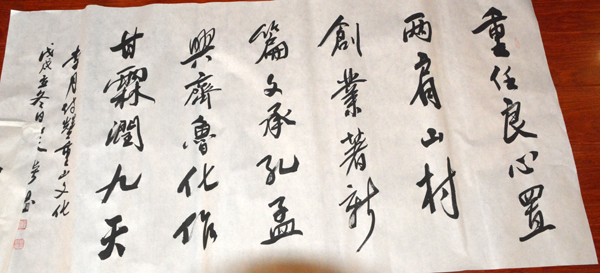 重任良心置
两肩山村
創業著新
篇文承孔孟
興齊魯化作
甘霖潤九天
李月 重山文化
戊戌立冬日